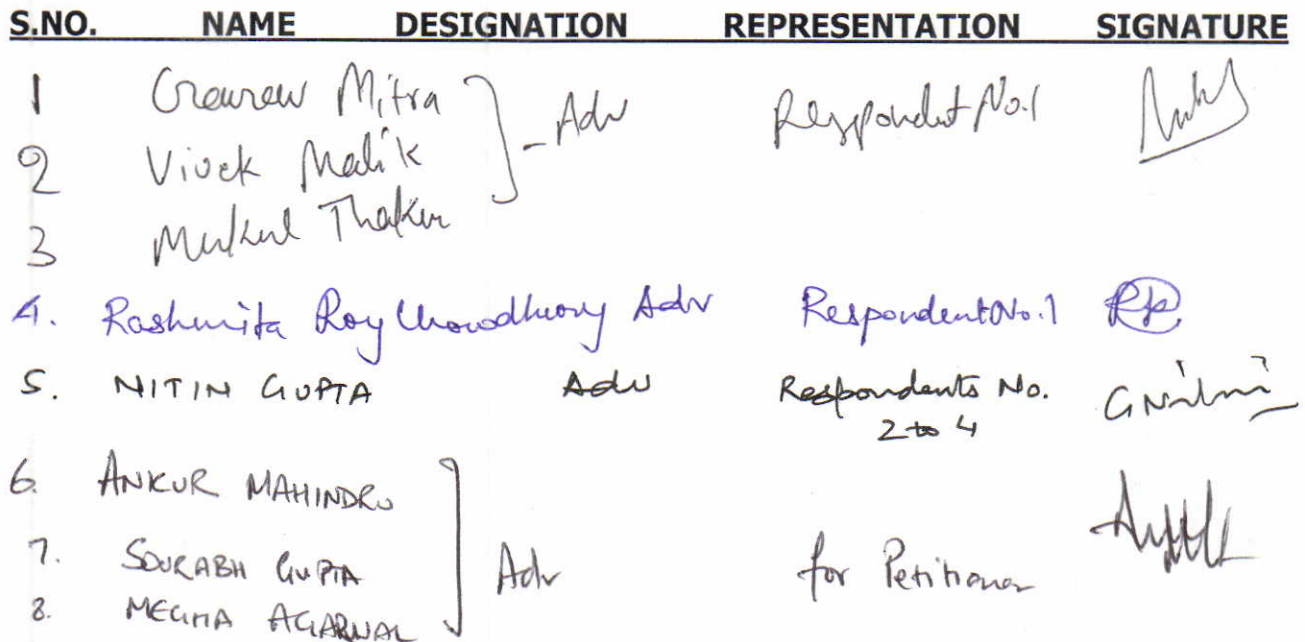 S.NO. NAME DESIGNATION REPRESENTATION SIGNATURE
1 Gaurav Mitra Adv Respondent No.1
2 Vivek Malik
3 Mukul Thakur
4. Rashmita Roy Chowdhury Adv Respondent No.1
5. NITIN GUPTA Adv Respondents No.
2 to 4
6. ANKUR MAHINDRU
7. SOURABH GUPTA Adv for Petitioner
8. MEGHA AGARWAL